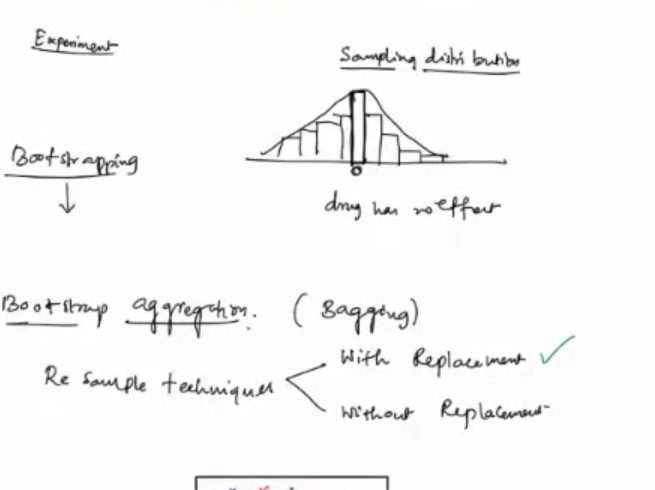 Experiment
Sampling distribution
Bootstrapping
0
drug has no effect
Bootstrap aggregation. (Bagging)
Re sample techniques
With Replacement ✓
Without Replacement